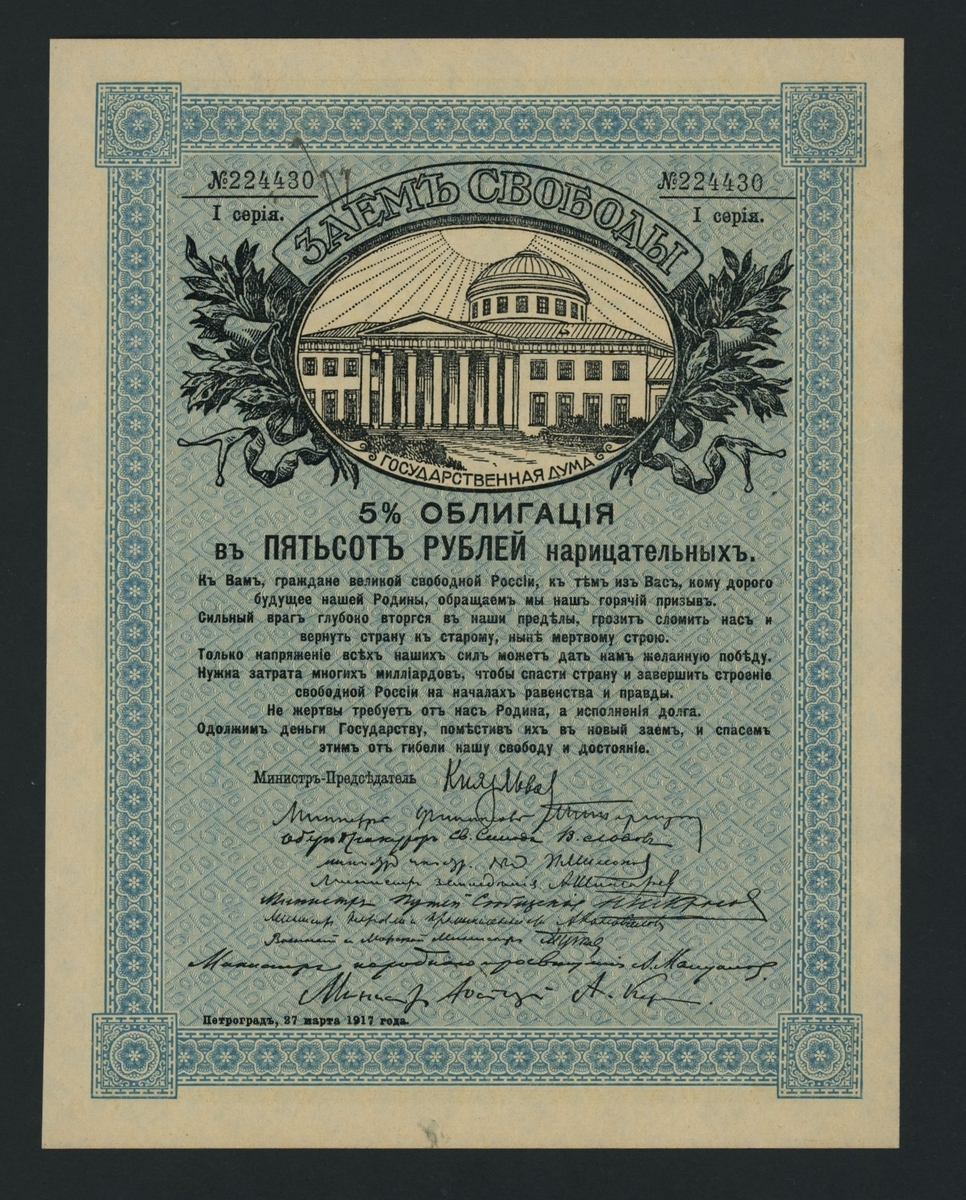 №224430
№224430
I серія.
I серія.
ЗАЕМЪ СВОБОДЫ
ГОСУДАРСТВЕННАЯ ДУМА
5% ОБЛИГАЦІЯ
въ ПЯТЬСОТЪ РУБЛЕЙ нарицательныхъ.
Къ Вамъ, граждане великой свободной Россіи, къ тѣмъ изъ Васъ, кому дорого
будущее нашей Родины, обращаемъ мы нашъ горячій призывъ.
Сильный врагъ глубоко вторгся въ наши предѣлы, грозитъ сломить насъ и
вернуть страну къ старому, нынѣ мертвому строю.
Только напряженіе всѣхъ нашихъ силъ можетъ дать намъ желанную побѣду.
Нужна затрата многихъ милліардовъ, чтобы спасти страну и завершить строеніе
свободной Россіи на началахъ равенства и правды.
Не жертвы требуетъ отъ насъ Родина, а исполненія долга.
Одолжимъ деньги Государству, помѣстивъ ихъ въ новый заемъ, и спасемъ
этимъ отъ гибели нашу свободу и достояніе.
Министръ-Предсѣдатель Князь Львов
Министръ Финансовъ
Оберъ Прокуроръ Св. Синода В. Львовъ
П. Милюков
Министръ земледѣлія А. Шингаревъ
Министръ Путей Сообщения Н. Некрасов
Министръ Торговли и Промышленности А. Коновалов
Военный и Морской Министръ А. Гучков
Министръ народного просвѣщенія А. Мануйлов
Министръ Юстиціи А. Кер
Петроградъ, 27 марта 1917 года.